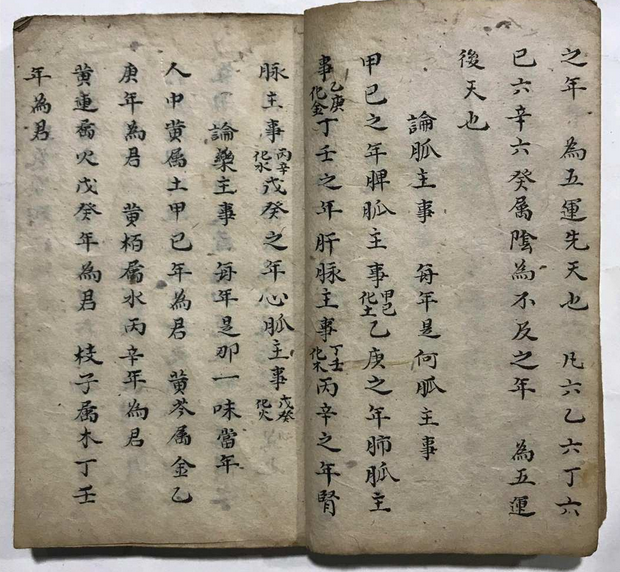 之年　為五運先天也　凡六乙六丁六
已六辛六癸属陰為不及之年　為五運
後天也
論脈主事　每年是何脈主事
甲已之年脾脈主事甲已化土乙庚之年肺脈主
事乙庚化金丁壬之年肝脉主事丁壬化木丙辛之年腎
脉主事丙辛化水戊癸之年心脈主事戊癸化火
論藥主事　每年是那一味當年
人中黄属土甲已年為君　黄芩属金乙
庚年為君　黄栢属水丙辛年為君
黄連属火戊癸年為君　枝子属木丁壬
年為君